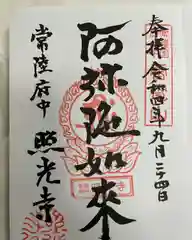 奉拝 令和四年九月二十四日
阿弥陀如来
常陸府中 照光寺